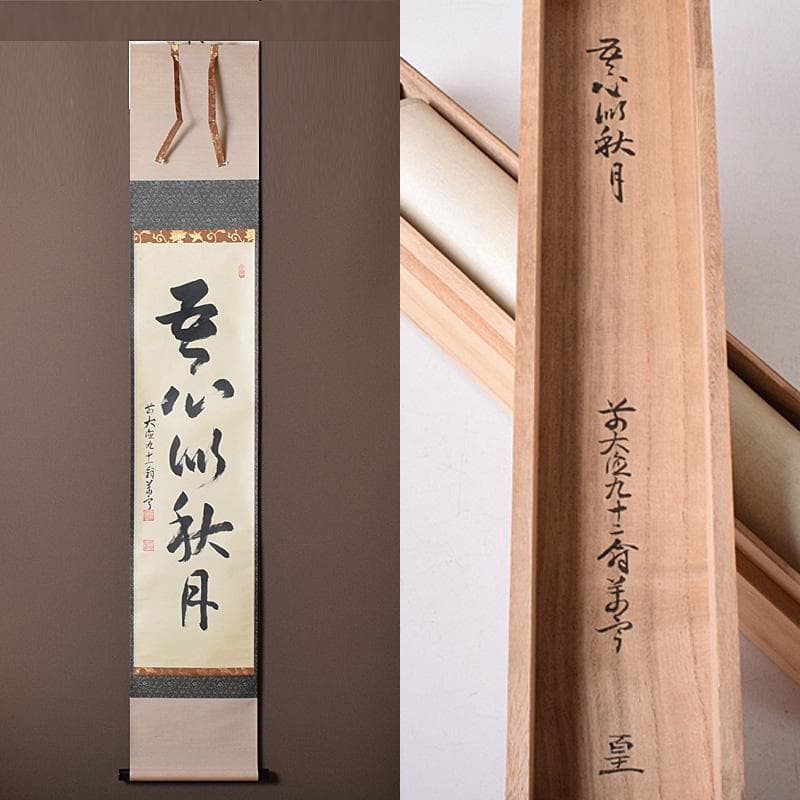 吾心似秋月
前大徳九十一翁
吾心似秋月
前大徳九十二翁